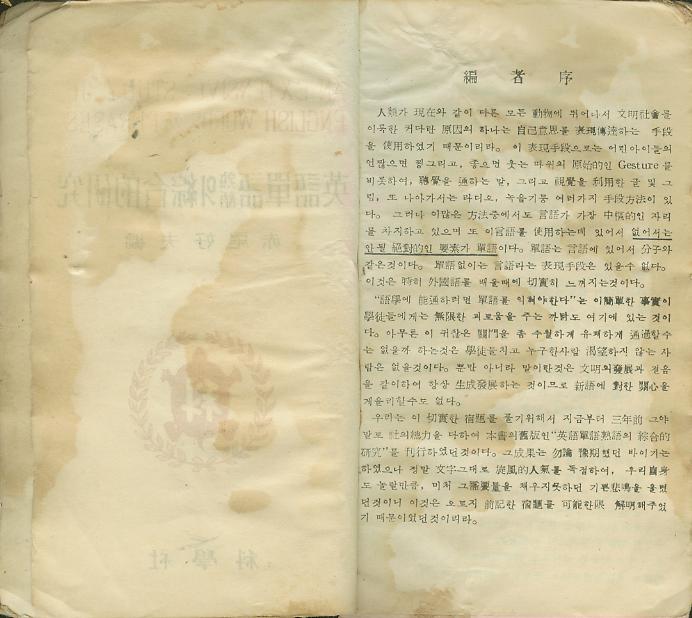 編者序
人類가 現在와 같이 다른 모든 動物에 뛰어나서 文明社會를
이룩한 커다란 原因의 하나는 自己意思를 表現傳達하는 手段
을 使用하였기 때문이리라. 이 表現手段으로는 어린아이들의
언짢으면 찡그리고, 좋으면 웃는 따위의 原始的인 Gesture를
비롯하여, 聽覺을 通하는 말, 그리고 視覺을 利用한 글 및 그
림, 또 나아가서는 라디오, 녹음기등 여러가지 手段方法이 있
다. 그러나 이많은 方法중에서도 言語가 가장 中樞的인 자리
를 차지하고 있으며 또 이言語를 使用하는데 있어서 없어서는
안될 絕對的인 要素가 單語이다. 單語는 言語에 있어서 分子와
같은것이다. 單語없이는 言語라는 表現手段은 있을수 없다.
이것은 特히 外國語를 배울때에 切實히 느껴지는것이다.
"語學에 能通하려면 單語를 익혀야한다"는 이簡單한 事實이
學徒들에게는 無限한 괴로움을 주는 까닭도 여기에 있는 것이
다. 아무튼 이 귀찮은 關門을 좀 수월하게 유쾌하게 通過할수
는 없을까 하는것은 學徒들치고 누구한사람 渴望하지 않는 사
람은 없을것이다. 뿐만 아니라 말이란것은 文明의發展과 걸음
을 같이하여 항상 生成發展하는 것이므로 新語에 對한 關心을
게을리할수도 없다.
우리는 이 切實한 宿題를 풀기위해서 지금부터 三年前 그야
말로 社의總力을 다하여 本書의舊版인"英語單語熟語의 綜合的
硏究"를 刊行하였던것이다. 그成果는 勿論 豫期했던 바이기는
하였으나 정말 文字그대로 旋風的人氣를 독점하여, 우리自身
도 놀랄만큼, 미처 그需要量을 채우지못하던 기쁜悲鳴을 올렸
던것이니 이것은 오로지 前記한 宿題를 可能한限 解明해주었
기 때문이었던것이리라.
英語單語 熟語의綜合的硏究
赤尾好夫 編
科學社